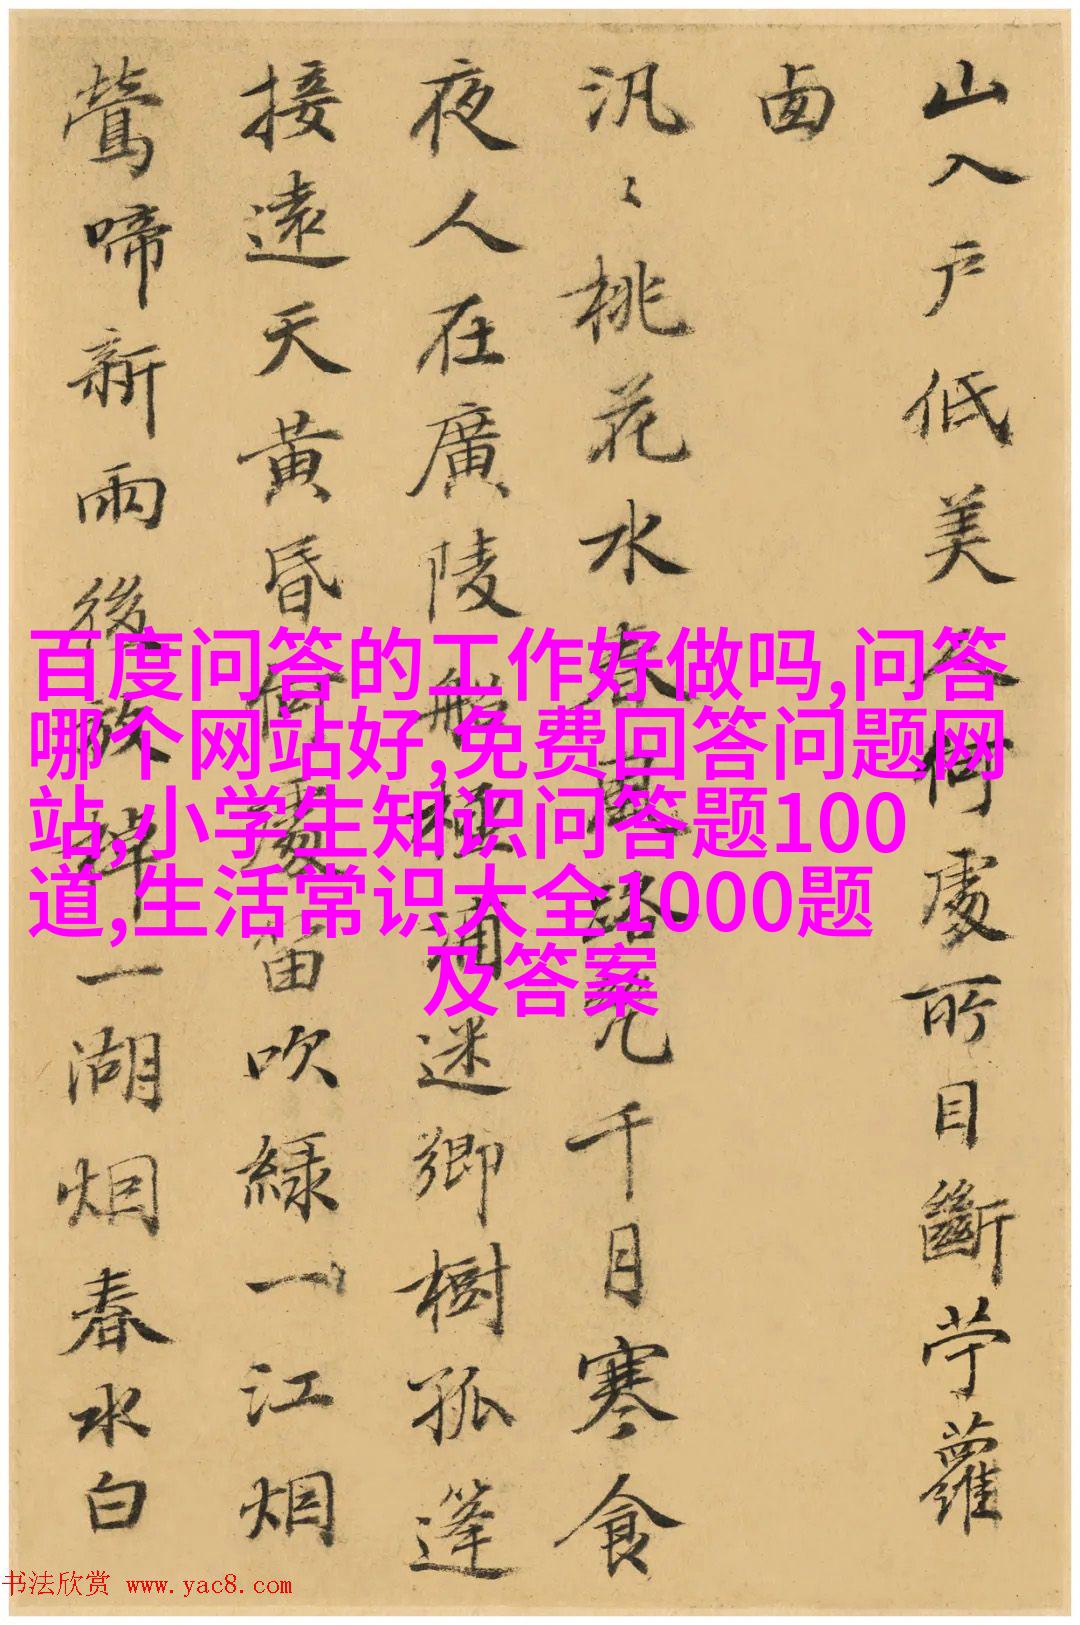 山入户低美人何處所目斷苧蘿
汎〻桃花水春風千月寒食
夜人在廣陵船極浦迷鄉樹孤篷
接遠天黃昏何處笛吹綠一江烟
鶯啼新雨後放棹一湖烟春水白
百度问答的工作好做吗,问答
哪个网站好,免费回答问题网
站,小学生知识问答题100
道,生活常识大全1000题
及答案
书法欣赏 www.yac8.com